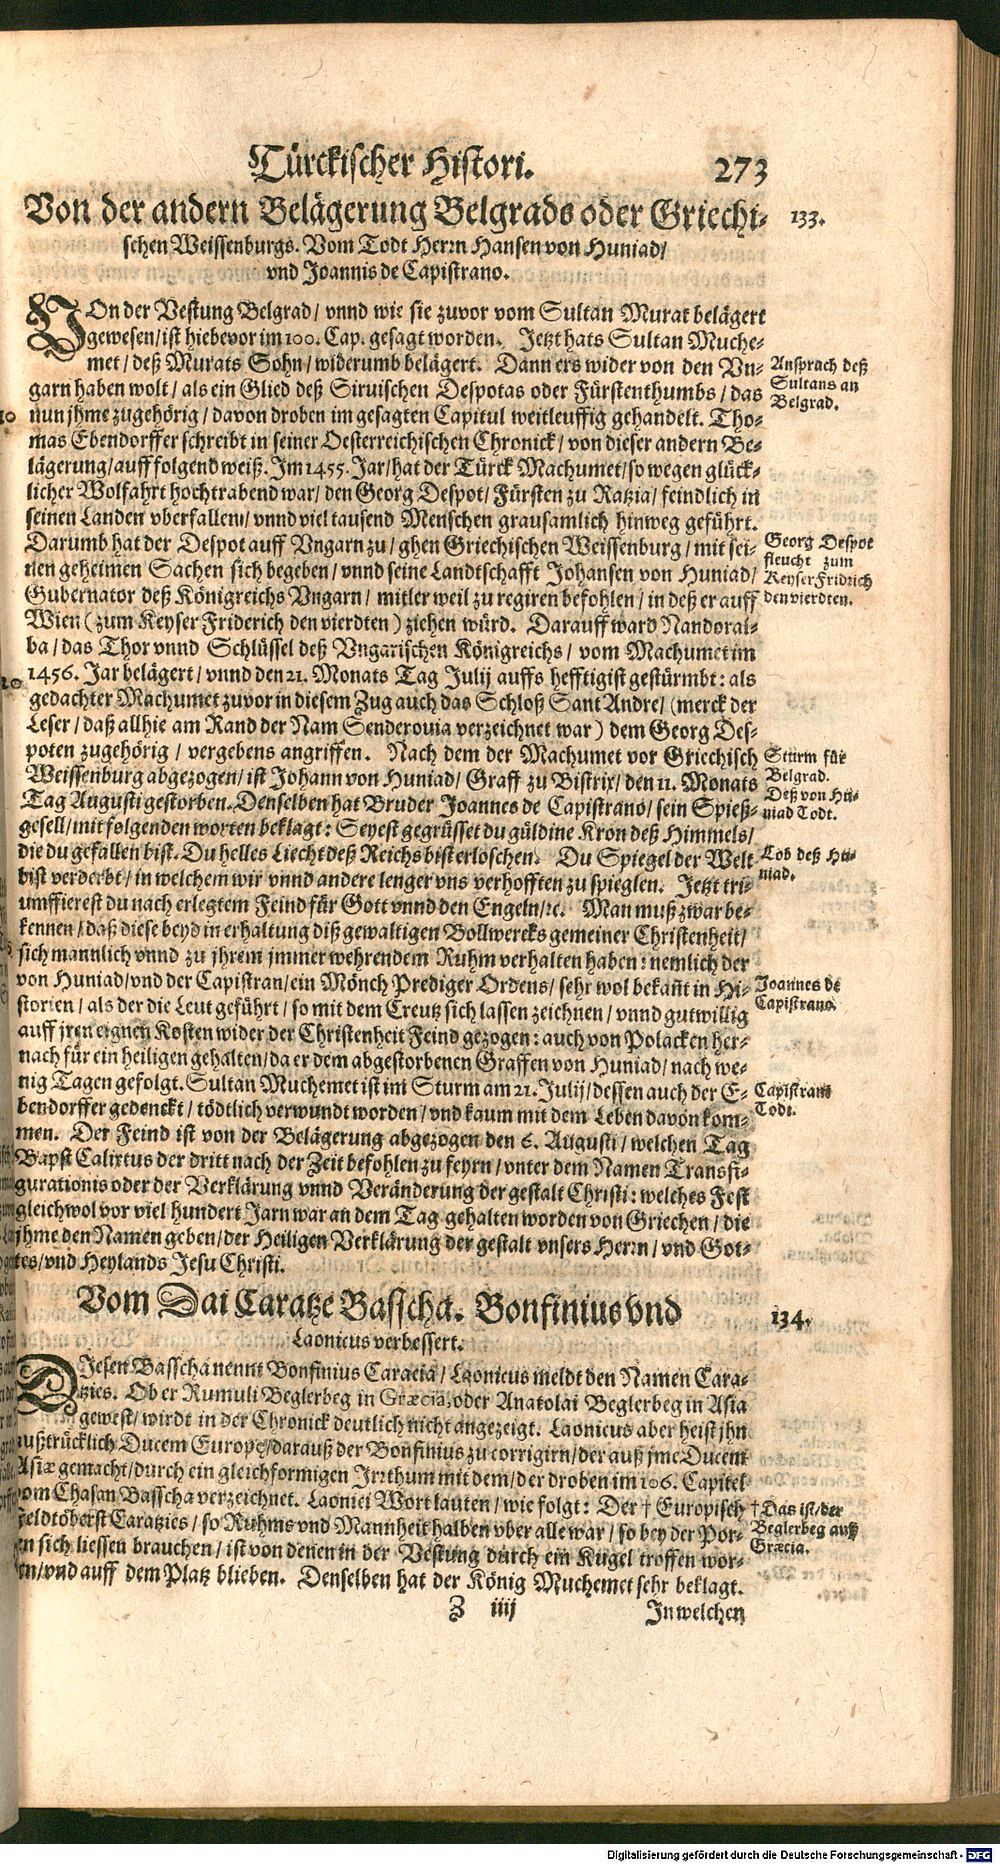 Türckischer Histori. 273
Von der andern Belägerung Belgrads oder Griechi- 133.
schen Weissenburgs. Vom Todt Herrn Hansen von Huniad/
vnd Joannis de Capistrano.
VOn der Vestung Belgrad / vnnd wie sie zuvor vom Sultan Murat belägert
gewesen/ist hiebevor im 100. Cap. gesagt worden. Jetzt hats Sultan Muche-
met / deß Murats Sohn / widerumb belägert. Dann ers wider von den Vn-
garn haben wolt / als ein Glied deß Siruischen Despotas oder Fürstenthumbs / das
nun jhme zugehörig / davon droben im gesagten Capitul weitleuffig gehandelt. Tho-
mas Ebendorffer schreibt in seiner Oesterreichischen Chronick / von dieser andern Be-
lägerung/auff folgend weiß. Im 1455. Jar/hat der Türck Machumet/so wegen glück-
licher Wolfahrt hochtrabend war / den Georg Despot / Fürsten zu Ratzia / feindlich in
seinen Landen vberfallem / vnnd viel tausend Menschen grausamlich hinweg geführt.
Darumb hat der Despot auff Vngarn zu / ghen Griechischen Weissenburg / mit sei-
nen geheimen Sachen sich begeben / vnnd seine Landtschafft Johansen von Huniad/
Gubernator deß Königreichs Vngarn / mitler weil zu regiren befohlen / in deß er auff
Wien ( zum Keyser Friderich den vierdten ) ziehen würd. Darauff ward Nandoral-
ba / das Thor vnnd Schlüssel deß Vngarischen Königreichs / vom Machumet im
1456. Jar belägert / vnnd den 21. Monats Tag Julij auffs hefftigist gestürmbt: als
gedachter Machumet zuvor in diesem Zug auch das Schloß Sant Andre/ (merck der
Leser / daß allhie am Rand der Nam Senderouia verzeichnet war ) dem Georg Des-
poten zugehörig / vergebens angriffen. Nach dem der Machumet vor Griechisch
Weissenburg abgezogen / ist Johann von Huniad / Graff zu Bistrix/ den 11. Monats
Tag Augusti gestorben. Denselben hat Bruder Joannes de Capistrano / sein Spieß-
gesell/mit folgenden worten beklagt: Seyest gegrüsset du güldine Kron deß Himmels/
die du gefallen bist. Du helles Liecht deß Reichs bist erloschen. Du Spiegel der Welt
bist verderbt / in welchem wir vnnd andere lenger vns verhofften zu spieglen. Jetzt tri-
umffierest du nach erlegtem Feind für Gott vnnd den Engeln/ꝛc. Man muß zwar be-
kennen / daß diese beyd in erhaltung diß gewaltigen Bollwercks gemeiner Christenheit/
sich mannlich vnnd zu jhrem jmmer wehrendem Ruhm verhalten haben: nemlich der
von Huniad/vnd der Capistran/ein Mönch Prediger Ordens / sehr wol bekañt in Hi-
storien / als der die Leut geführt / so mit dem Creutz sich lassen zeichnen / vnnd gutwillig
auff jren eignen Kosten wider der Christenheit Feind gezogen: auch von Polacken her-
nach für ein heiligen gehalten/da er dem abgestorbenen Graffen von Huniad / nach we-
nig Tagen gefolgt. Sultan Muchemet ist im Sturm am 21. Julij/dessen auch der E-
bendorffer gedenckt / tödtlich verwundt worden / vnd kaum mit dem Leben davon kom-
men. Der Feind ist von der Belägerung abgezogen den 6. Augusti / welchen Tag
Bapst Calixtus der dritt nach der Zeit befohlen zu feyrn / vnter dem Namen Transfi-
gurationis oder der Verklärung vnnd Veränderung der gestalt Christi: welches Fest
gleichwol vor viel hundert Jarn war an dem Tag gehalten worden von Griechen / die
jhme den Namen geben / der Heiligen Verklärung der gestalt vnsers Herrn / vnd Got-
tes/vnd Heylands Jesu Christi.
Ansprach deß
Sultans an
Belgrad.
Georg Despot
fleucht zum
Keyser Fridrich
den vierdten.
Sturm für
Belgrad.
Deß von Hu-
niad Todt.
Lob deß Hu-
niad.
Joannes de
Capistrano.
Capistrani
Todt.
Vom Dai Caratze Basscha. Bonfinius vnd 134.
Laonicus verbessert.
DJesen Basscha nennt Bonfinius Caracia / Laonicus meldt den Namen Cara-
tzies. Ob er Rumuli Beglerbeg in Græcia, oder Anatolai Beglerbeg in Asia
gewest / wirdt in der Chronick deutlich nicht angezeigt. Laonicus aber heist jhn
außtrücklich Ducem Europę/darauß der Bonfinius zu corrigirn/der auß jme Ducem
Asiæ gemacht/durch ein gleichformigen Irrthum mit dem/der droben im 106. Capitel
vom Chasan Basscha verzeichnet. Laonici Wort lauten / wie folgt: Der † Europisch
Feldtöberst Caratzies / so Ruhms vnd Mannheit halben vber alle war / so bey der Por-
en sich liessen brauchen / ist von denen in der Vestung durch ein Kugel troffen wor-
en/vnd auff dem Platz blieben. Denselben hat der König Muchemet sehr beklagt.
† Das ist/der
Beglerbeg auß
Græcia.
Z iiij In welchen
Digitalisierung gefördert durch die Deutsche Forschungsgemeinschaft - DFG